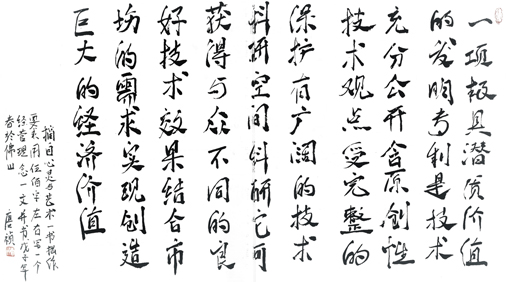 一项极具潜质价值
的发明专利是技术
充分公开含原创性
技术观点受完整的
保护有广阔的技术
科研空间科研它可
获得与众不同的良
好技术效果结合市
场的需求实现创造
巨大的经济价值
摘自心是与艺术一书
要求用伍佰字左右写一个
经营理念一文并书戊子年
春于佛山